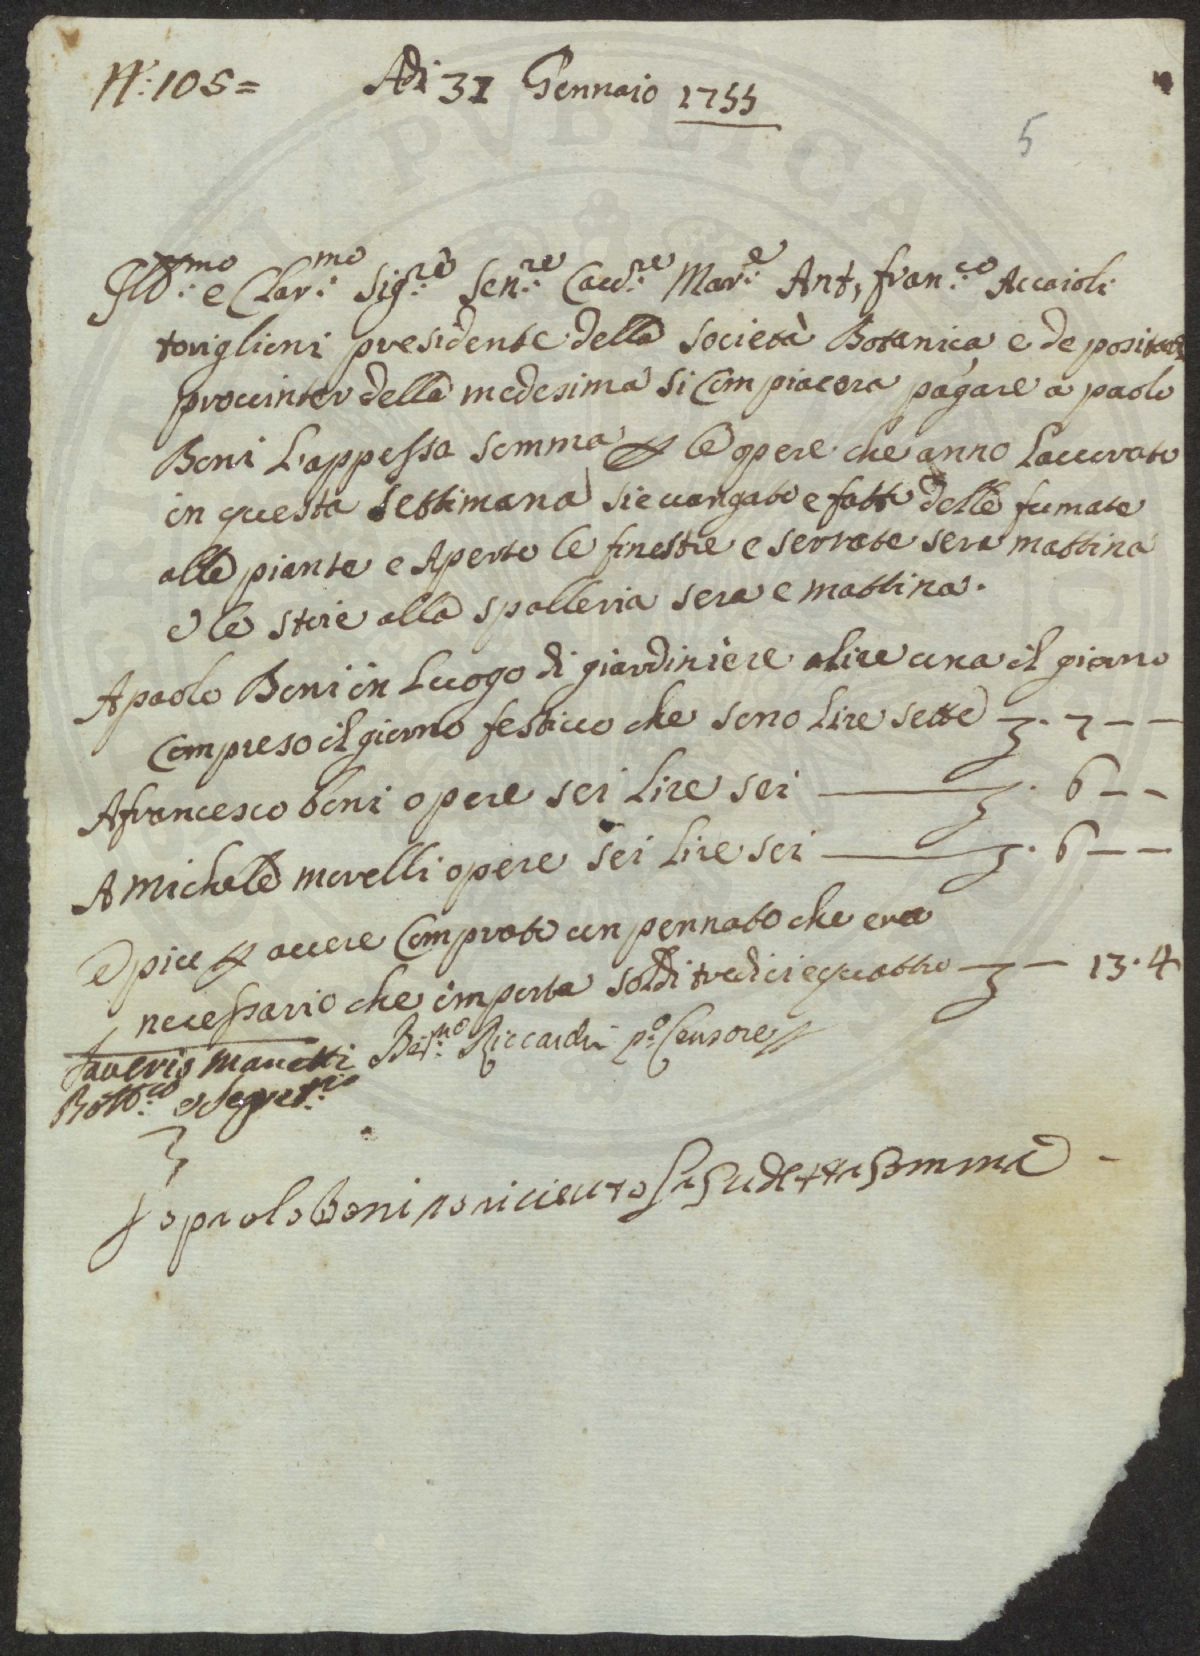 N.: 105 =
Adi 31 Gennaio 1755
5
Ill.mo e Clar.mo Sig.re Sen.re Cav.re Mar.e Ant. Fran.co Accaioli
toriglioni presidente della società Botanica e depositar
prouinter della medesima si Compiacera pagare a paolo
Boni L'appessa somma p le opere che anno Lauorato
in questa settimana si e uangato e fatto delle fumate
alle piante e Aperto le finestre e serrate sera mattina
e le stoie alla spalleria sera e mattina.
A paolo Boni in Luogo di giardiniere a lire una il giorno
Compreso il giorno festiuo che sono Lire sette 7 - -
A francesco boni opere sei Lire sei 6 - -
A Michele morelli opere sei Lire sei 6 - -
e piu p auere Comprato un pennato che era
necessario che importa soldi tredici e quattro 13.4
Sauerio Manetti
Bott.co e Segret.rio
Ber.no Riccardi p.o Censore
Io paolo Boni o riceuto la sudetta somma -